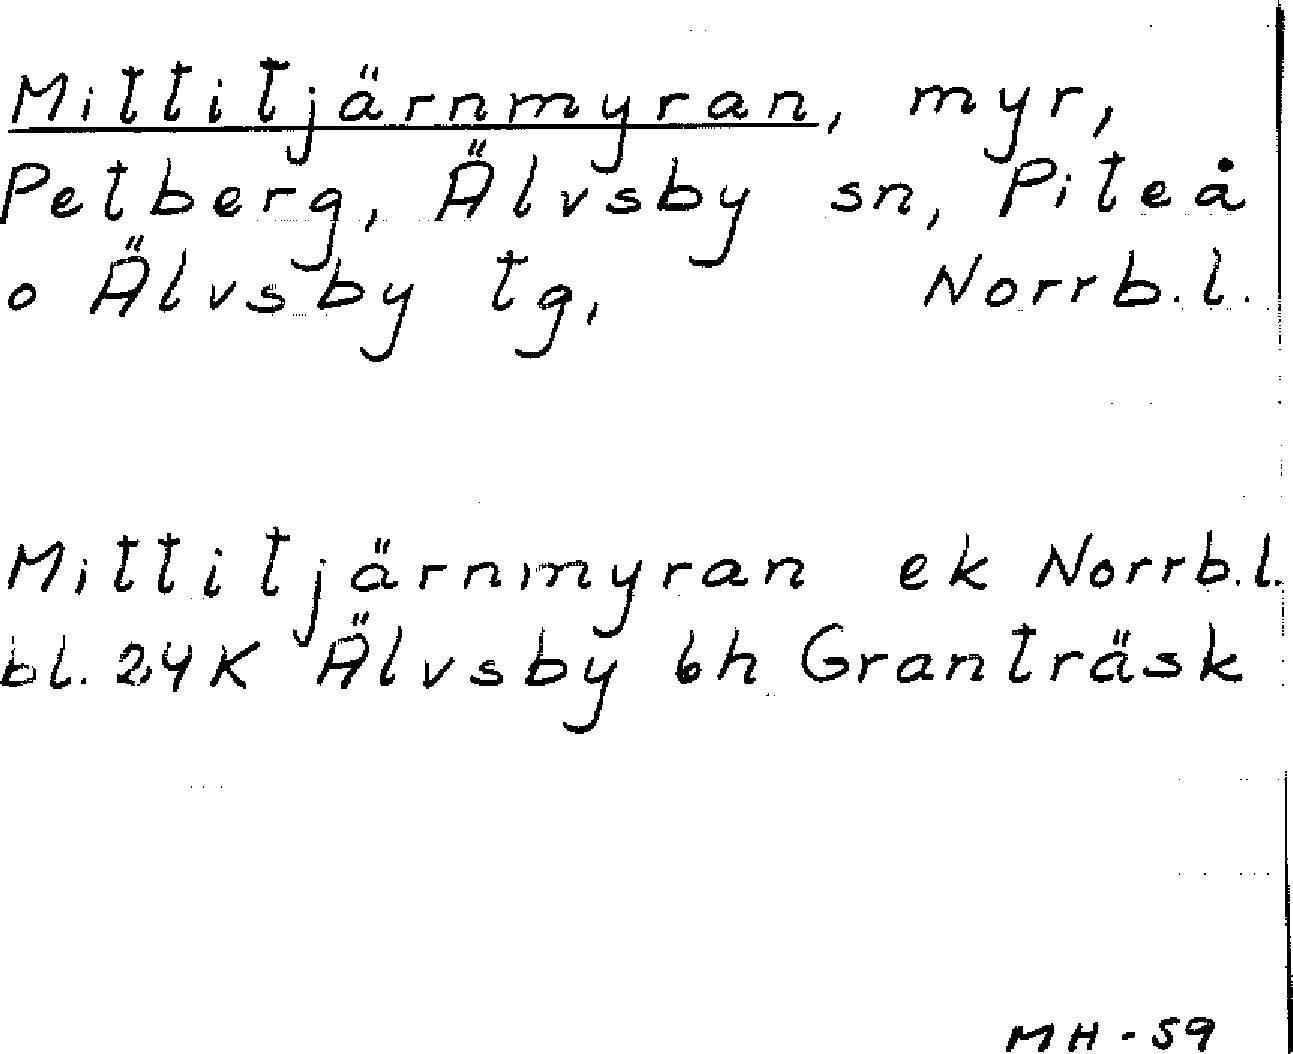 Mittitjärnmyran, myr,
Petberg, Älvsby sn, Piteå
o Älvsby tg, Norrb.l.
Mittitjärnmyran ek Norrb.l.
bl. 24K Älvsby 6h Granträsk
MH-59